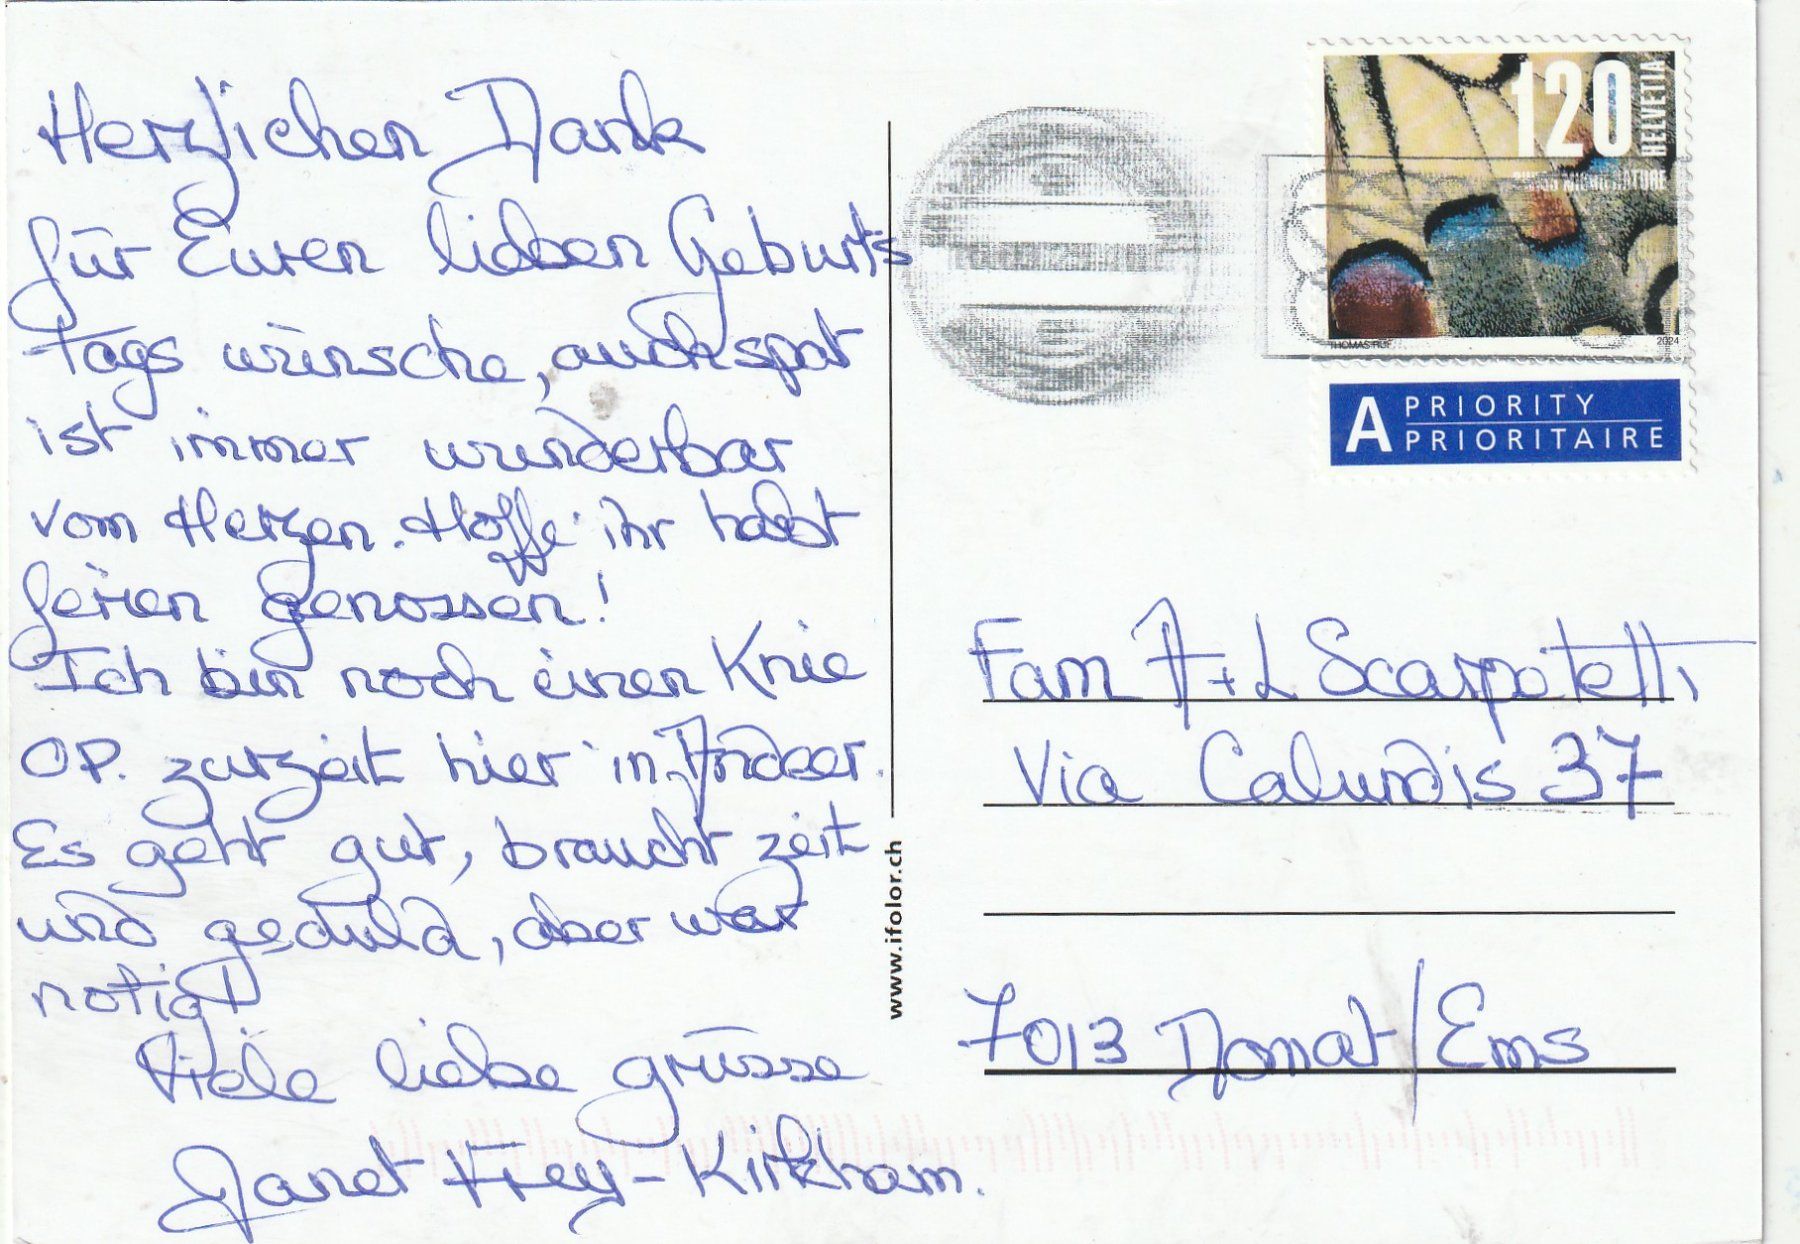 Herzlichen Dank
für Euren lieben Geburts
tags wünsche, auch spat
ist immer wunderbar
vom Herzen. Hoffe ihr habt
ferien genossen!
Ich bin noch einen Knie
OP. zurzeit hier in Andeer.
Es geht gut, braucht zeit
und geduld, aber war
notig!
Viele liebe grüsse
Janet Frey-Kirkham.
www.ifolor.ch
120
HELVETIA
SWISS MICRO NATURE
THOMAS RUF
2024
A PRIORITY
PRIORITAIRE
Fam A+L Scarpatetti
Via Calundis 37
7013 Domat/Ems